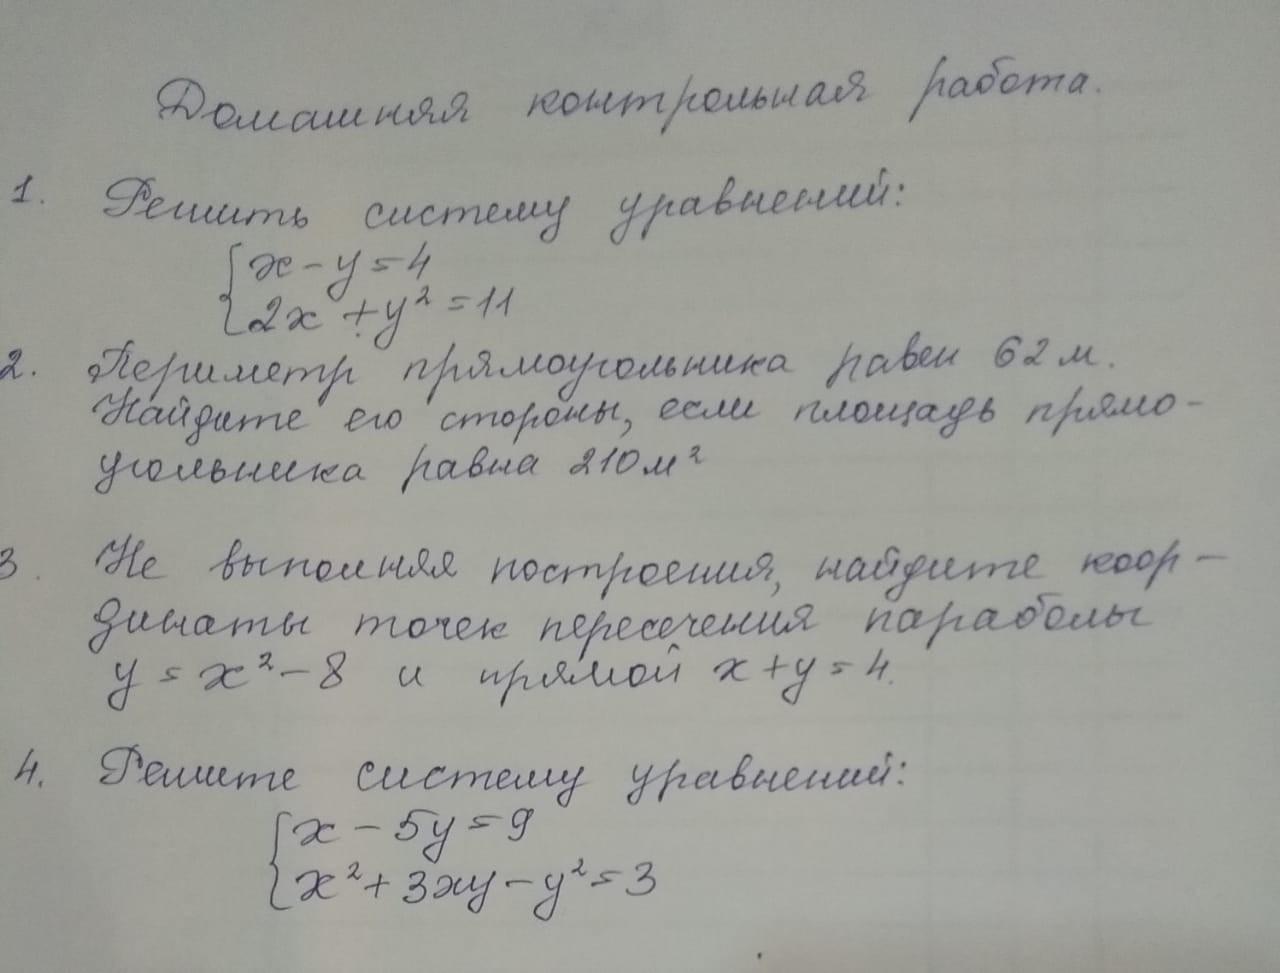 Домашняя контрольная работа.
1. Решить систему уравнений:
{ x - y = 4
2x + y² = 11
2. Периметр прямоугольника равен 62 м.
Найдите его стороны, если площадь прямо-
угольника равна 210 м²
3. Не выполняя построения, найдите коор-
динаты точек пересечения параболы
y = x² - 8 и прямой x + y = 4.
4. Решите систему уравнений:
{ x - 5y = 9
x² + 3xy - y² = 3